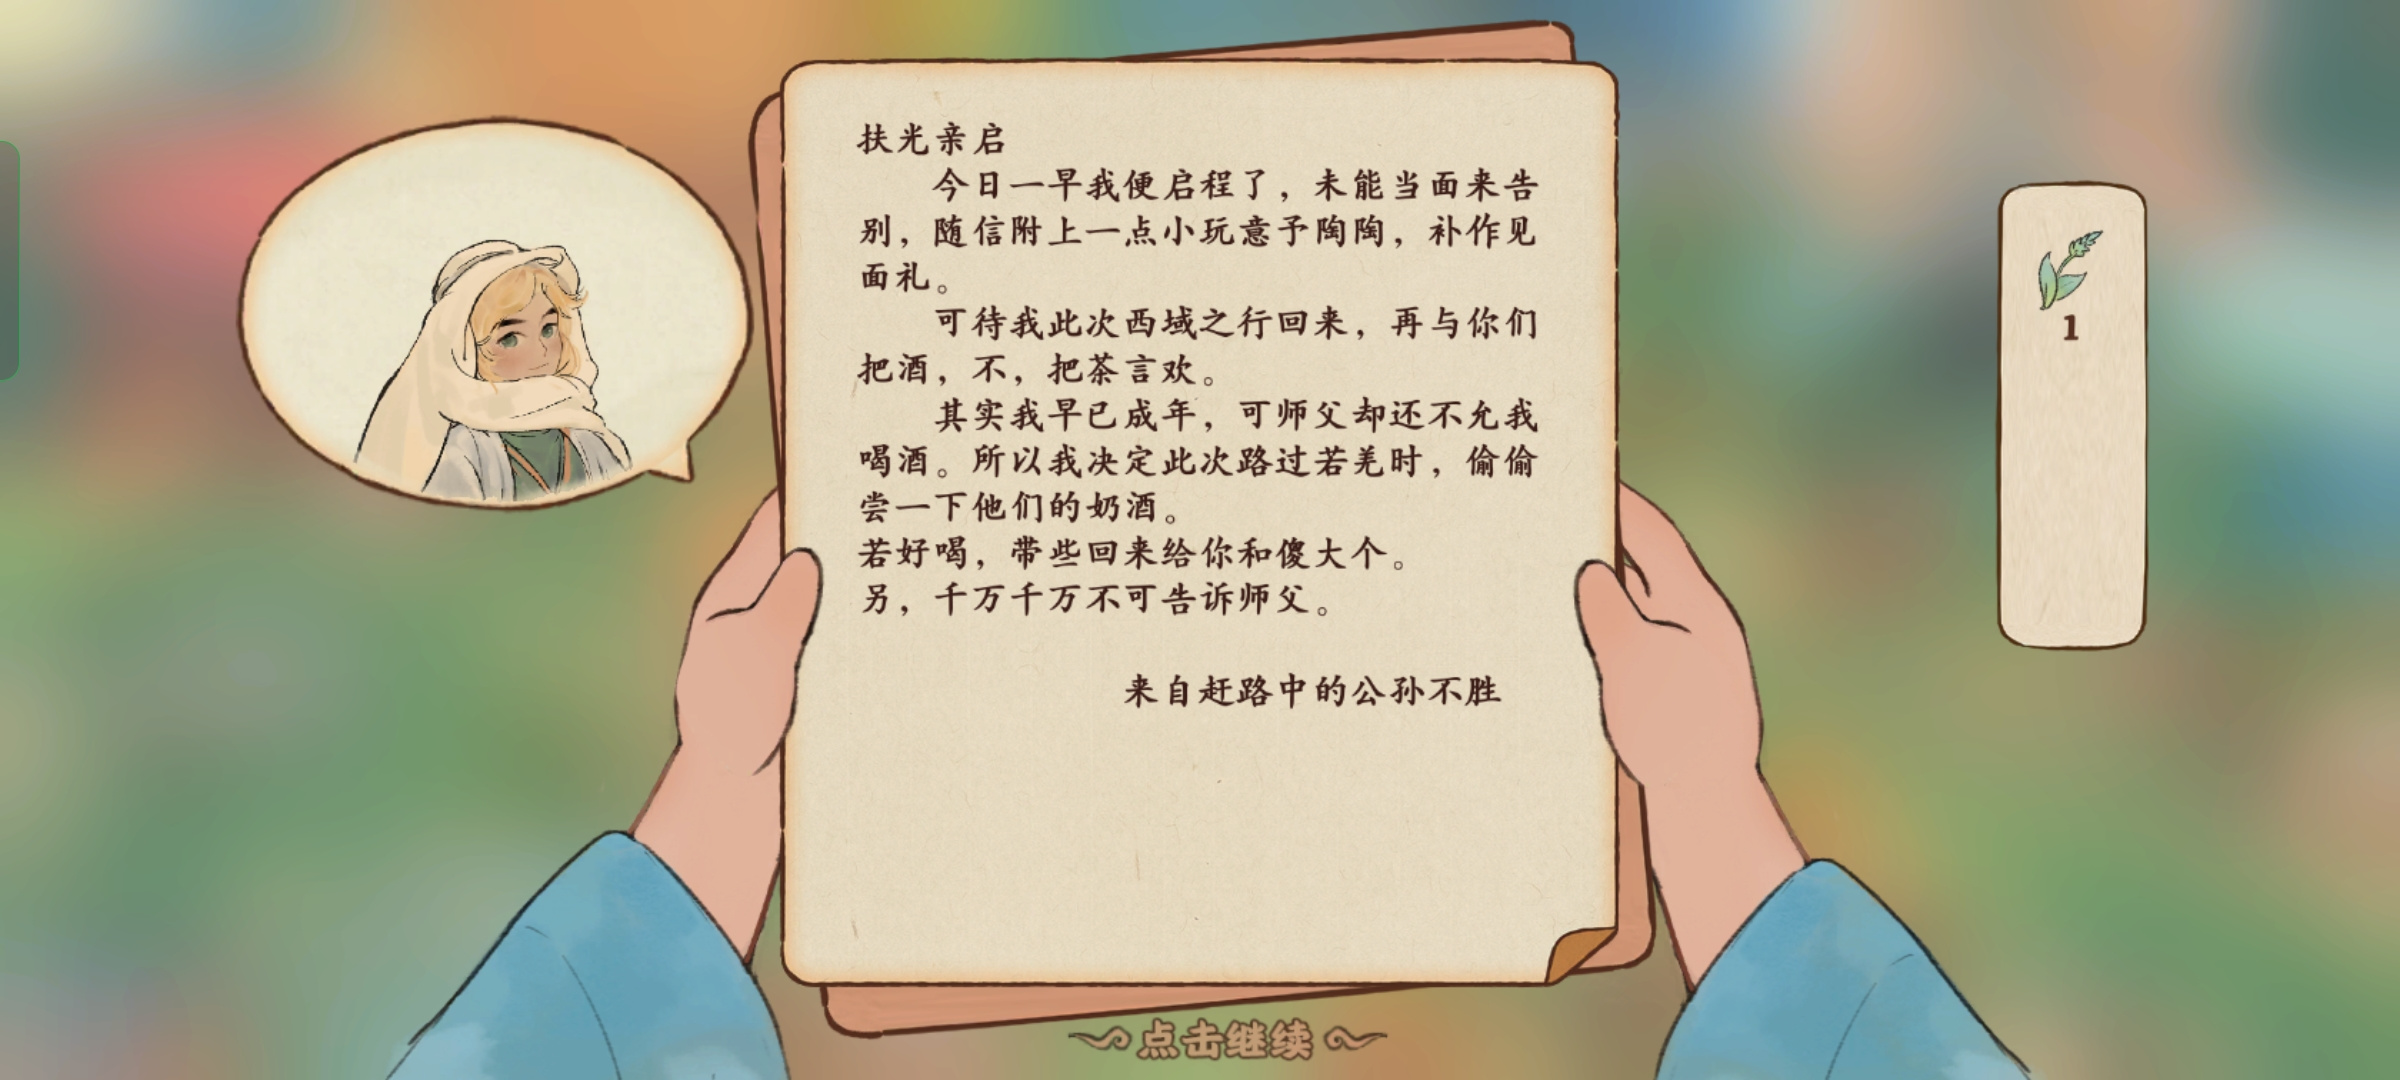 扶光亲启
今日一早我便启程了，未能当面来告
别，随信附上一点小玩意予陶陶，补作见
面礼。
可待我此次西域之行回来，再与你们
把酒，不，把茶言欢。
其实我早已成年，可师父却还不允我
喝酒。所以我决定此次路过若羌时，偷偷
尝一下他们的奶酒。
若好喝，带些回来给你和傻大个。
另，千万千万不可告诉师父。
来自赶路中的公孙不胜
1
点击继续